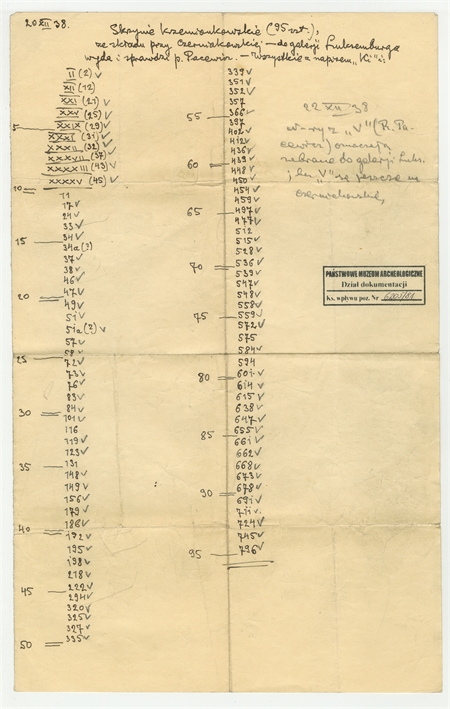 20 XII 38.
Skrzynie krzemionkowskie (95 szt.),
ze składu przy Czerniakowskiej – do galerji Luksemburga
wyda i sprawdzi p. Pacewicz. – Wszystkie z napisem „Ki” i:
II (2) v
XII (12)
XXI (21) v
XXV (25) v
5 XXIX (29) v
XXXI (31) v
XXXII (32) v
XXXVII (37)
XXXXIII (43) v
10 XXXXV (45) v
11
17 v
24 v
33 v
15 34 v
34a (?)
37 v
38 v
46 v
20 47 v
49 v
51 v
51a (?) v
57 v
25 58 v
72 v
73 v
76 v
83 v
30 84 v
101 v
116
119 v
123 v
35 131
148 v
149 v
156 v
179 v
40 186 v
192 v
195 v
198 v
218 v
45 222 v
294 v
320 v
325 v
327 v
50 335 v
339 v
351 v
352 v
357
55 366 v
397
402 v
412 v
436 v
60 439 v
448 v
450 v
454 v
459 v
65 497 v
477 v
512
515 v
528 v
70 536 v
539 v
547 v
548 v
558 v
75 559 v
572 v
575
584 v
594
80 601 v
614 v
615 v
638 v
647 v
85 655 v
661 v
662 v
668 v
673 v
90 678 v
691 v
711 v.
724 v
745 v
95 796 v
22 XII 38
„V” (P. Pa-
cewicz) oznaczają
zabrane do galerji Luks.
„V” są jeszcze na
Czerniakowskiej
PAŃSTWOWE MUZEUM ARCHEOLOGICZNE
Dział dokumentacji
Ks. wpływu poz. Nr